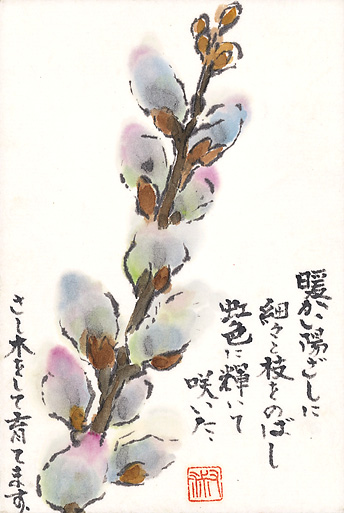 暖かい陽ざしに
細々と枝をのばし
虹色に輝いて
咲いた
さし木をして育てます。